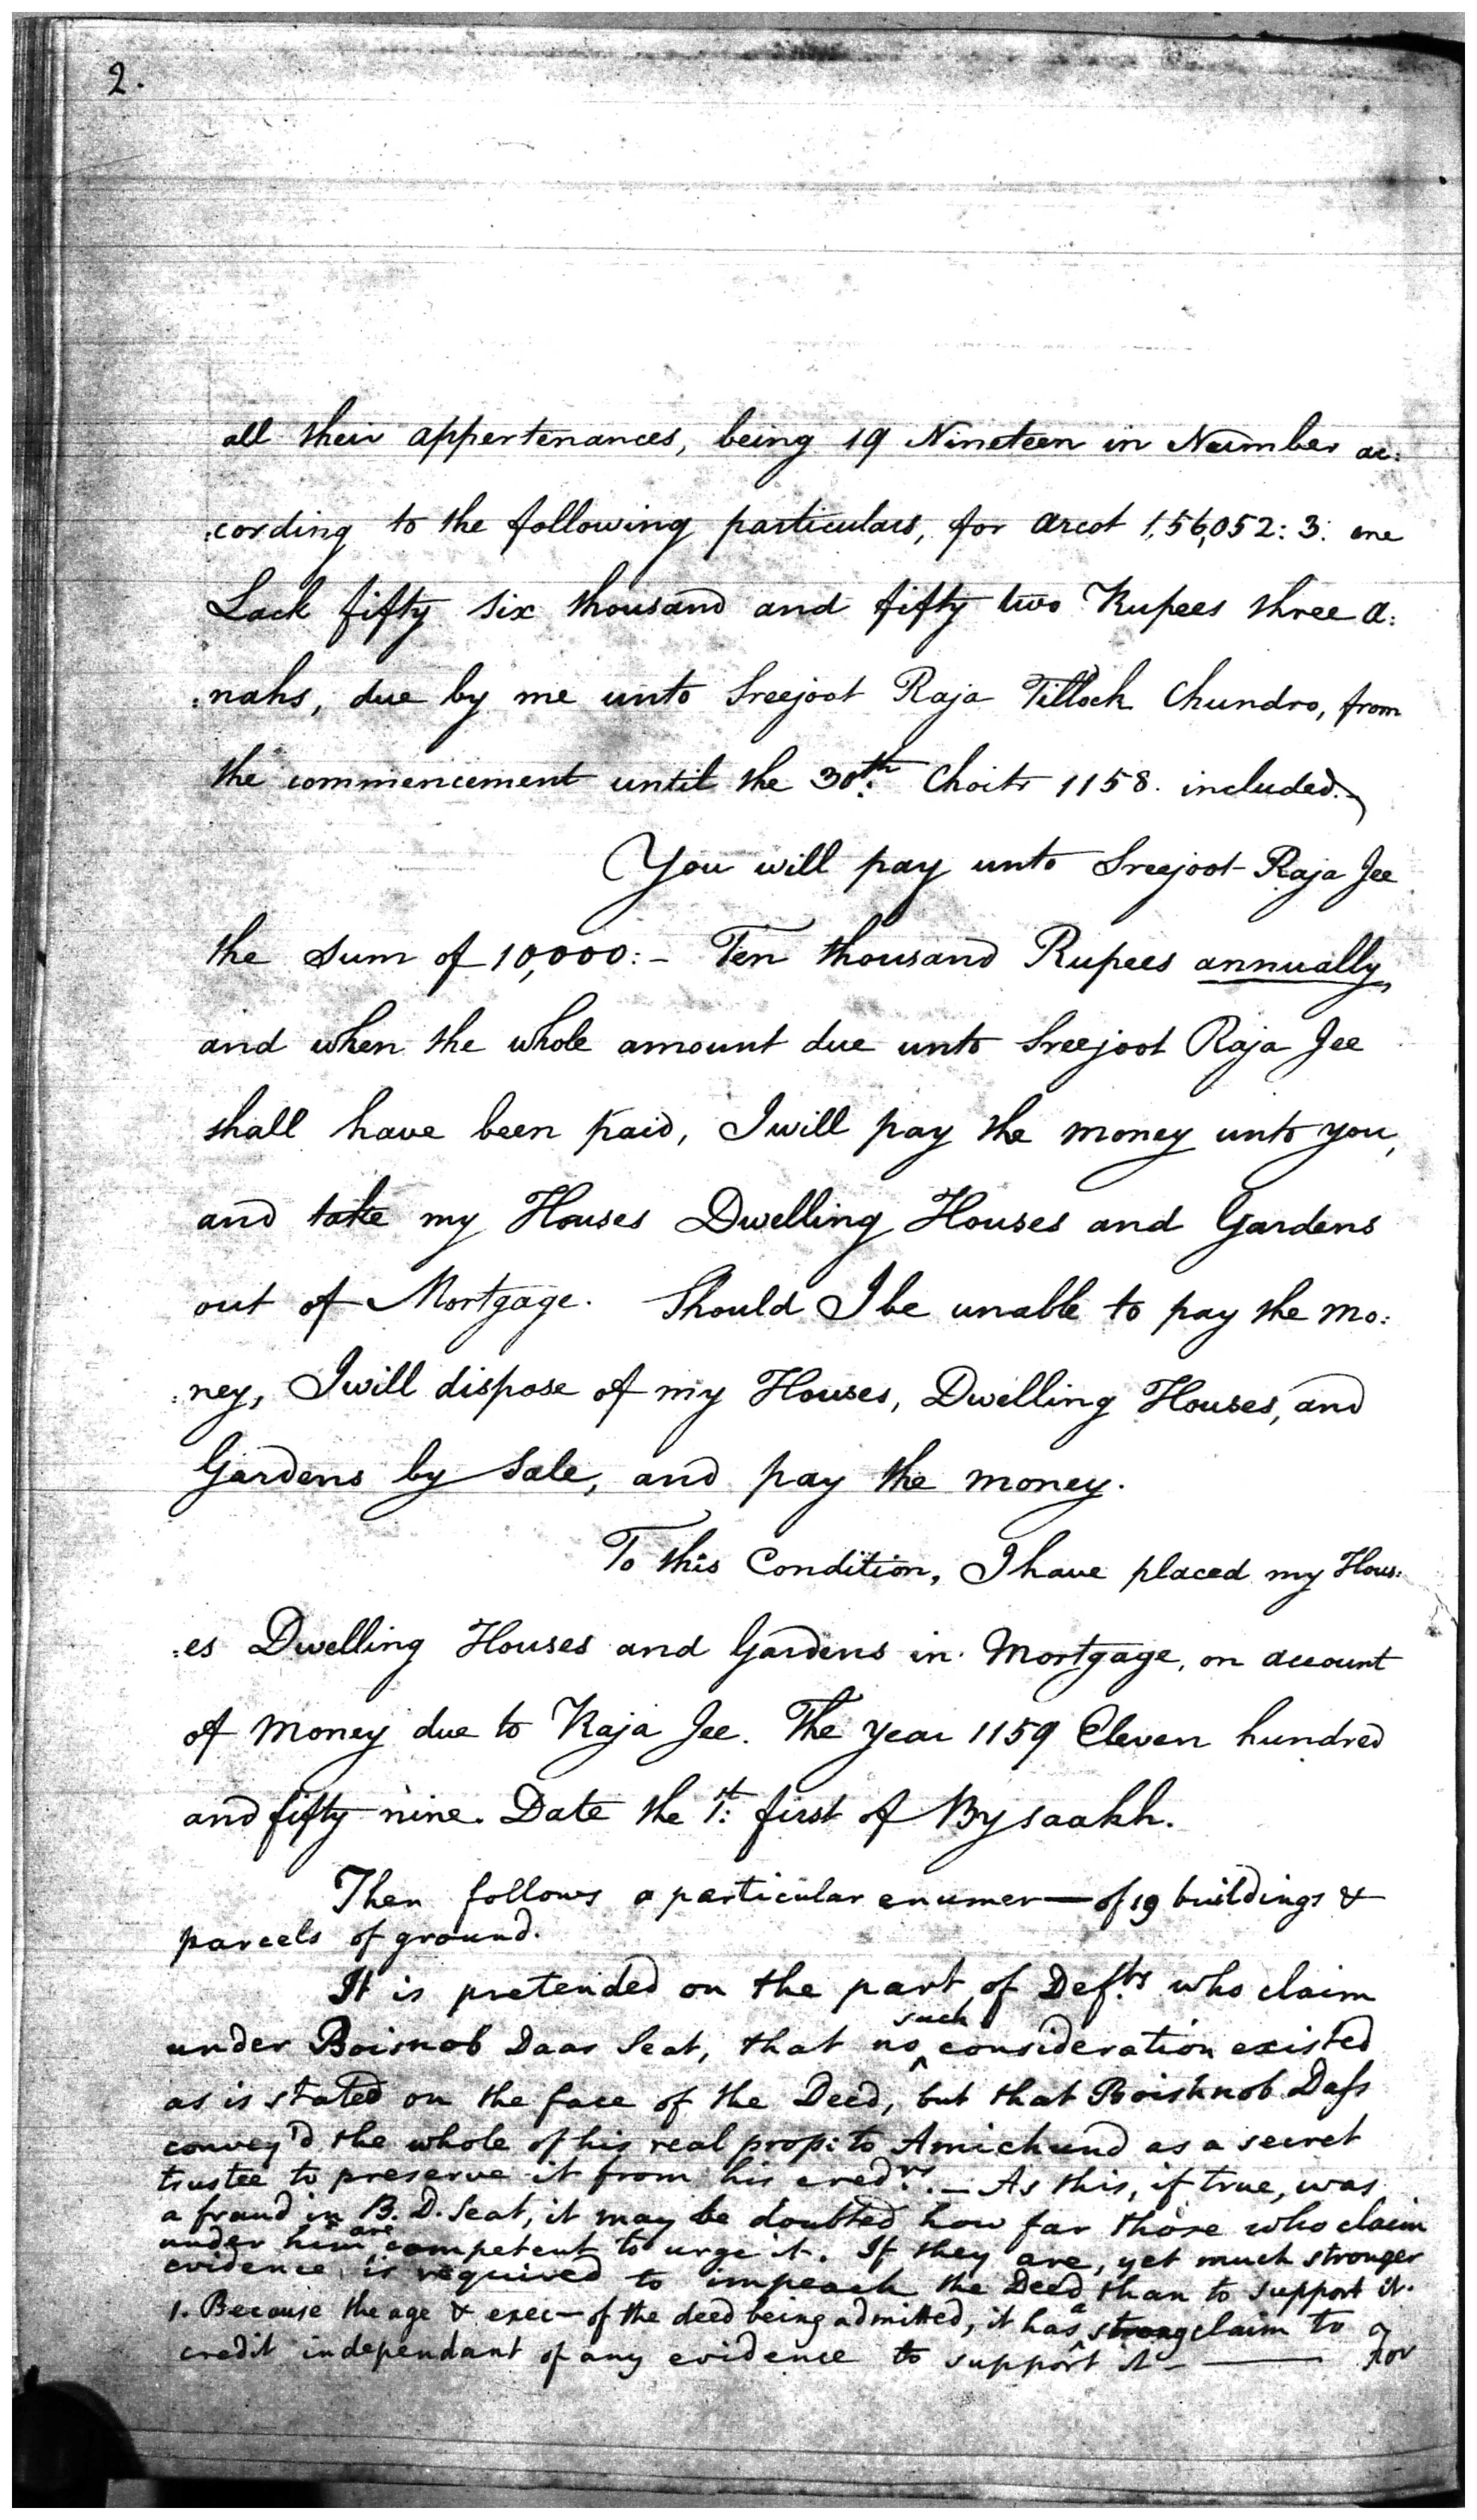 2.
all their appertenances, being 19 Nineteen in Number ac:
:cording to the following particulars, for arcot 1,56,052: 3: one
Lack fifty six thousand and fifty two Rupees three a:
:nahs, due by me unto Sreejoot Raja Tillock Chundro, from
the commencement until the 30th: Choitr 1158. included.
You will pay unto Sreejoot Raja Jee
the Sum of 10,000:- Ten thousand Rupees annually,
and when the whole amount due unto Sreejoot Raja Jee
shall have been paid, I will pay the money unto you,
and take my Houses Dwelling Houses and Gardens
out of Mortgage. Should I be unable to pay the mo:
:ney, I will dispose of my Houses, Dwelling Houses, and
Gardens by Sale, and pay the money.
To this Condition, I have placed my Hous:
:es Dwelling Houses and Gardens in Mortgage, on account
of Money due to Raja Jee. The Year 1159 Eleven hundred
and fifty nine. Date the 1st: first of Bysaakh.
Then follows a particular enumer— of 19 buildings &
parcels of ground.
It is pretended on the part of Defts who claim
under Boisnob Daas Seat, that no such consideration existed
as is stated on the face of the Deed, but that Boishnob Dass
convey'd the whole of his real prop: to Amichund as a secret
trustee to preserve it from his credrs. — As this, if true, was
a fraud in B. D. Seat, it may be doubted how far those who claim
under him are competent to urge it. If they are, yet much stronger
evidence is required to impeach the Deed than to support it.
1. Because the age & exec— of the deed being admitted, it has a strong claim to
credit independant of any evidence to support it — for